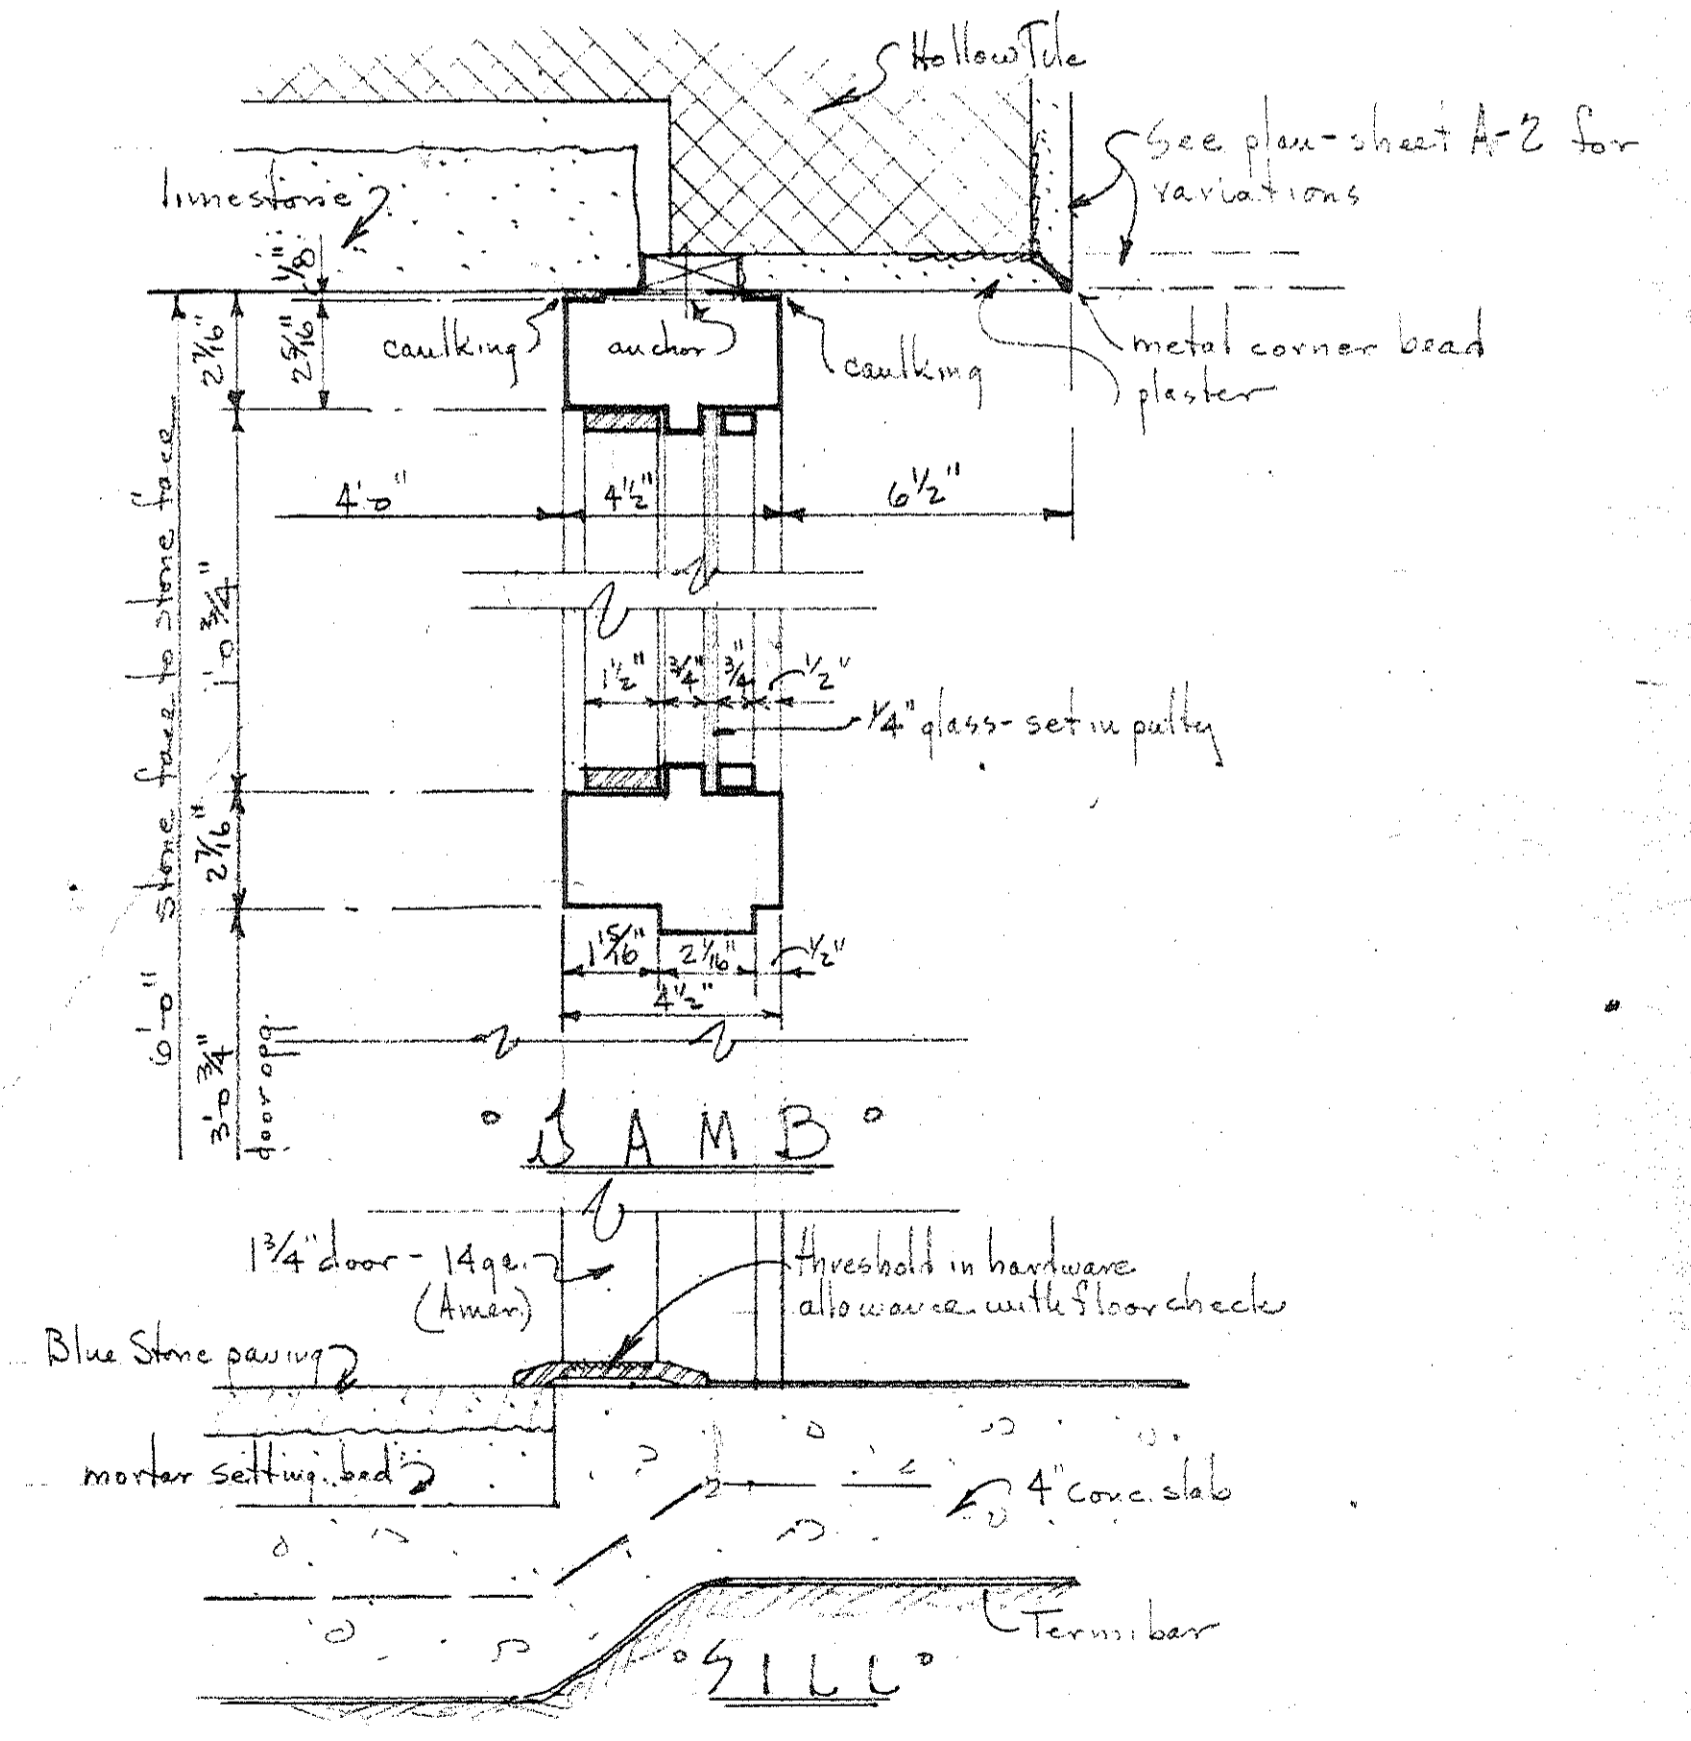 Hollow Tile
See plan-sheet A-2 for
variations
limestone
1/8"
2 7/16"
2 5/16"
caulking
anchor
caulking
metal corner bead
plaster
4'-0"
4 1/2"
6 1/2"
6'-0" stone face to stone face
1'-0 3/4"
1 1/2"
3/4"
3/4"
1/2"
1/4" glass-set in putty
2 7/16"
1 15/16"
2 1/16"
1/2"
4 1/2"
3'-0 3/4"
door opg.
° J A M B °
1 3/4" door - 14ga.
(Amer.)
threshold in hardware
allowance with floor check
Blue Stone paving
mortar setting bed
4" conc. slab
Termibar
° S I L L °